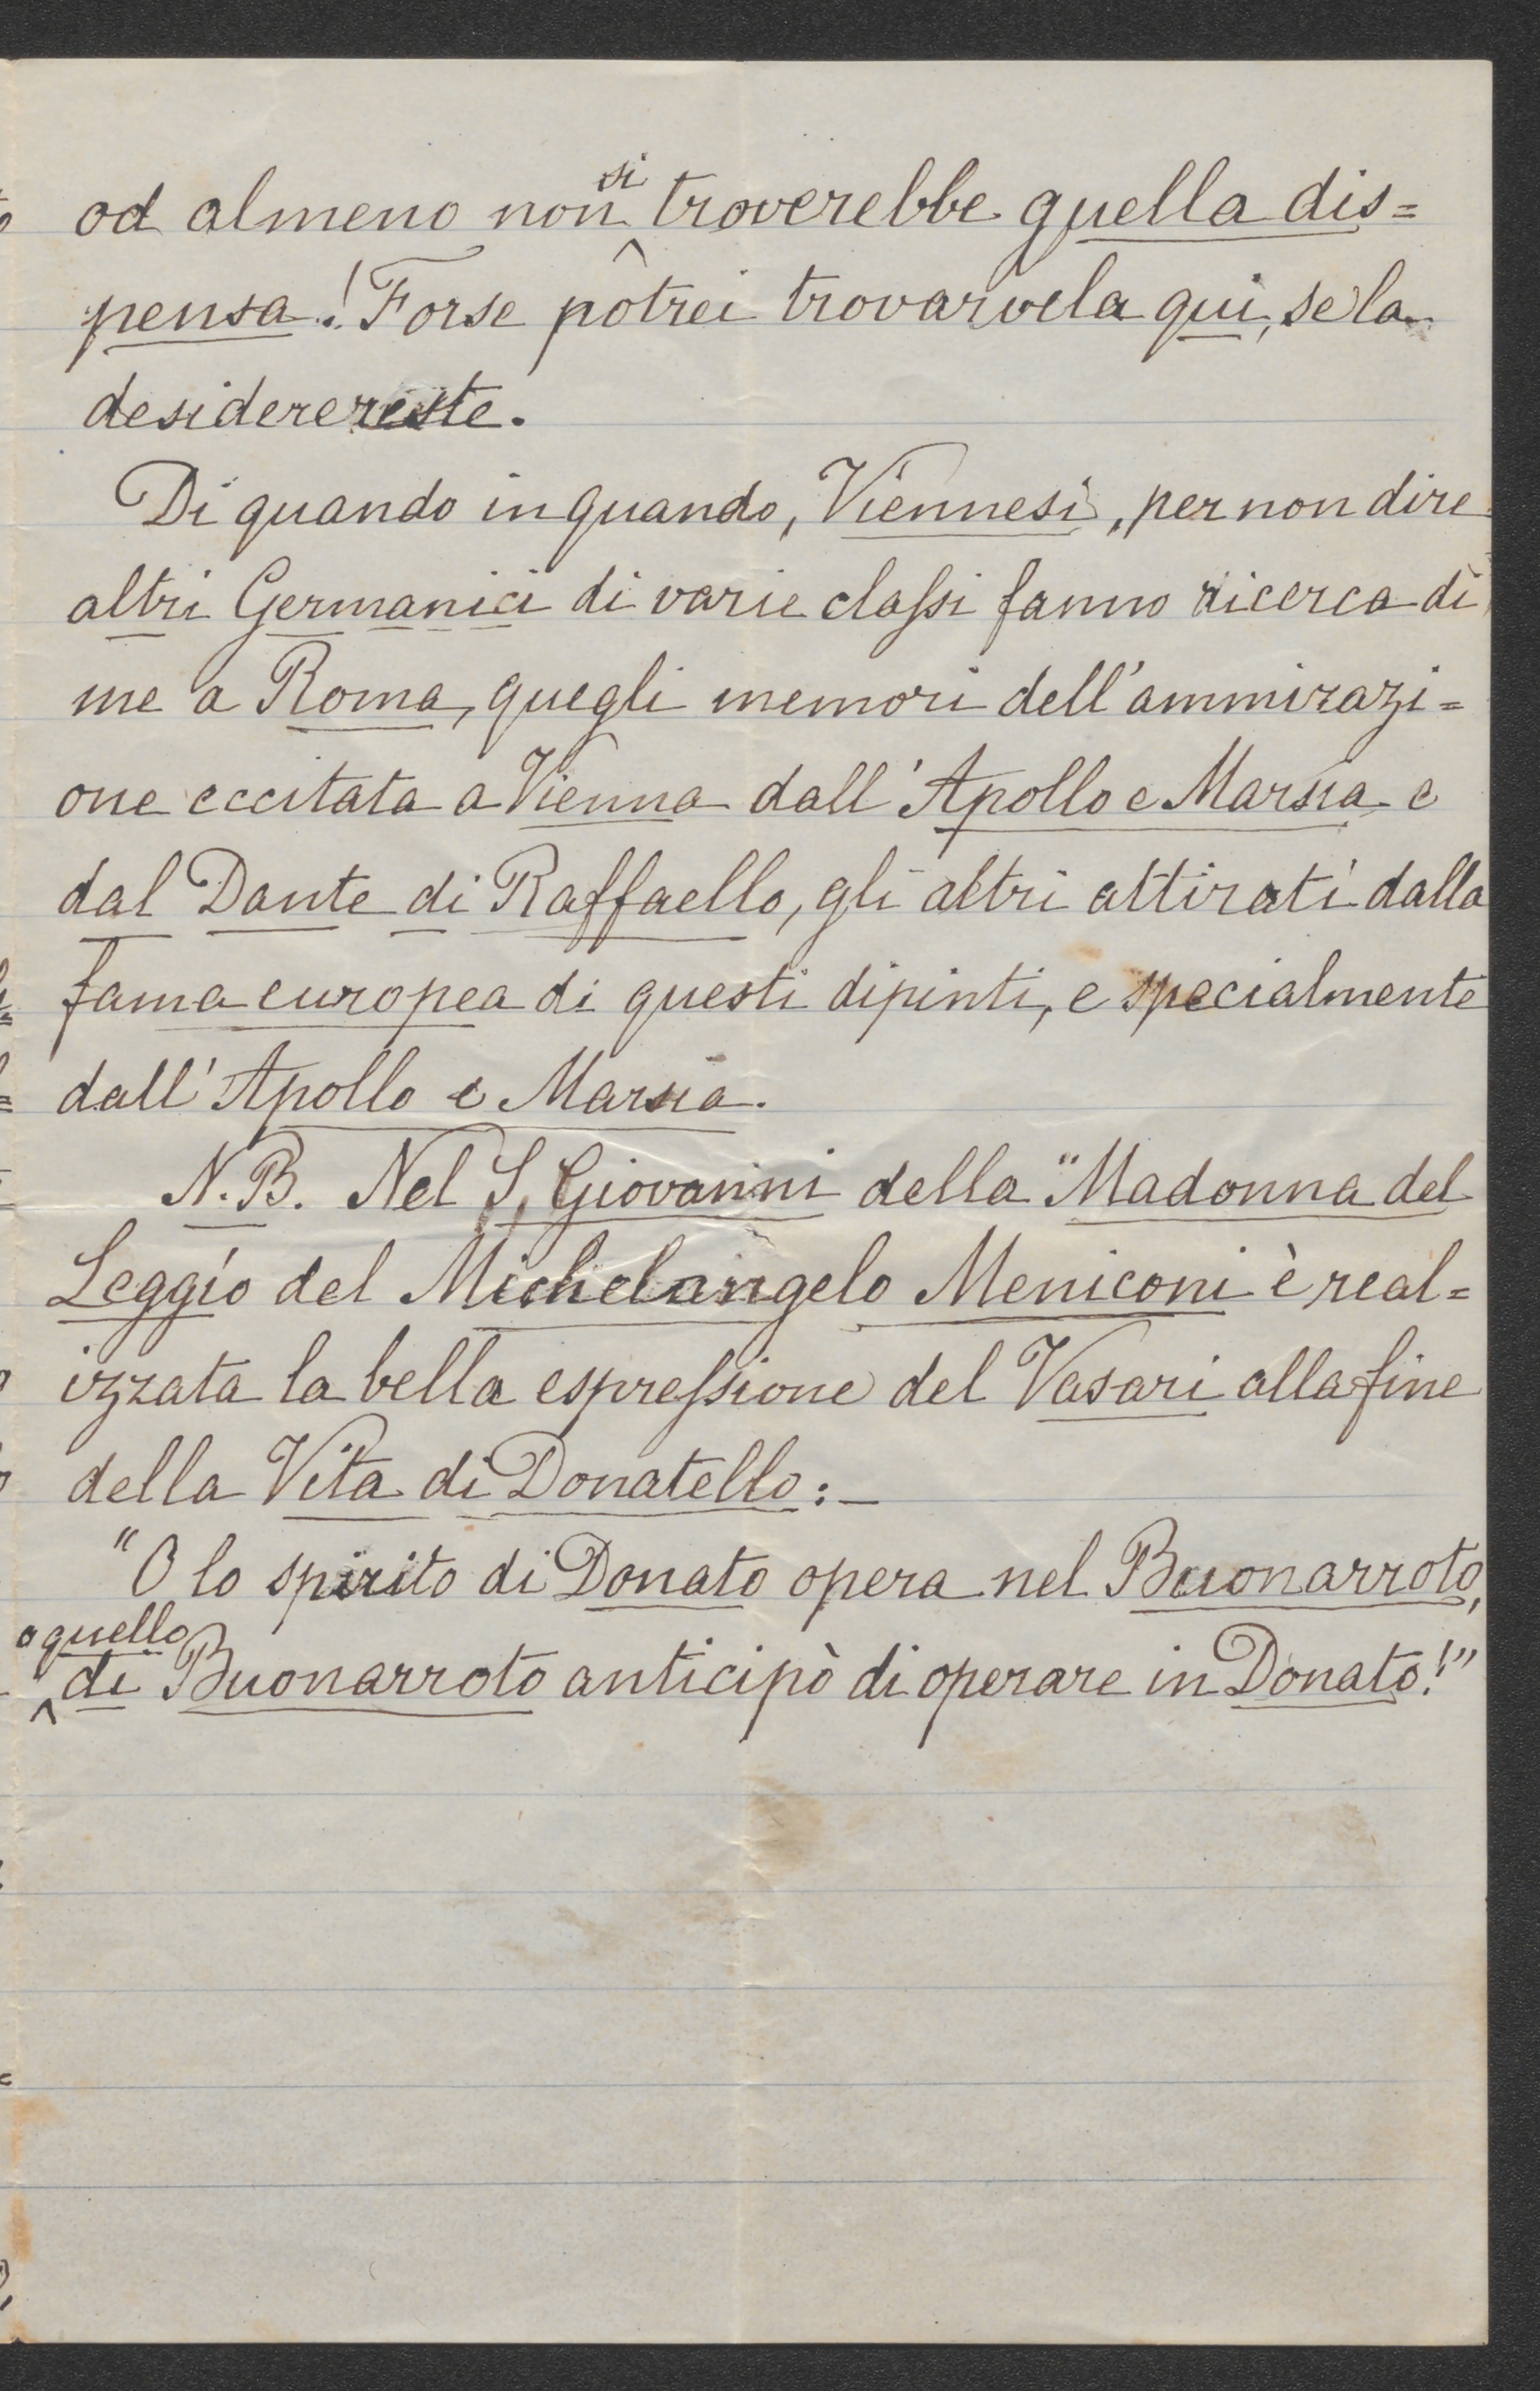 od almeno non si troverebbe quella dis=
pensa! Forse potrei trovarvela qui, se la
desiderereste.
Di quando in quando, Viennesi, per non dire
altri Germanici di varie claſsi fanno ricerca di
me a Roma, quegli memori dell'ammirazi=
one eccitata a Vienna dall'Apollo e Marsia e
dal Dante di Raffaello, gli altri attirati dalla
fama europea di questi dipinti, e specialmente
dall'Apollo e Marsia.
N.B. Nel S. Giovanni della "Madonna del
Leggío del Michelangelo Meniconi è real=
izzata la bella espreſsione del Vasari alla fine
della Vita di Donatello:—
"O lo spirito di Donato opera nel Buonarroto,
o quello
di Buonarroto anticipò di operare in Donato!"